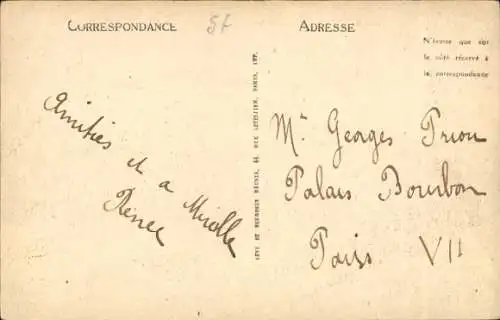 CORRESPONDANCE
ADRESSE
N'écrire que sur
le côté réservé à
la correspondance
Amitiés et a Mirelle
Renée
LÉVY ET NEURDEIN RÉUNIS, 44, RUE LETELLIER, PARIS, IMP.
Mr Georges Priou
Palais Bourbon
Paris VII